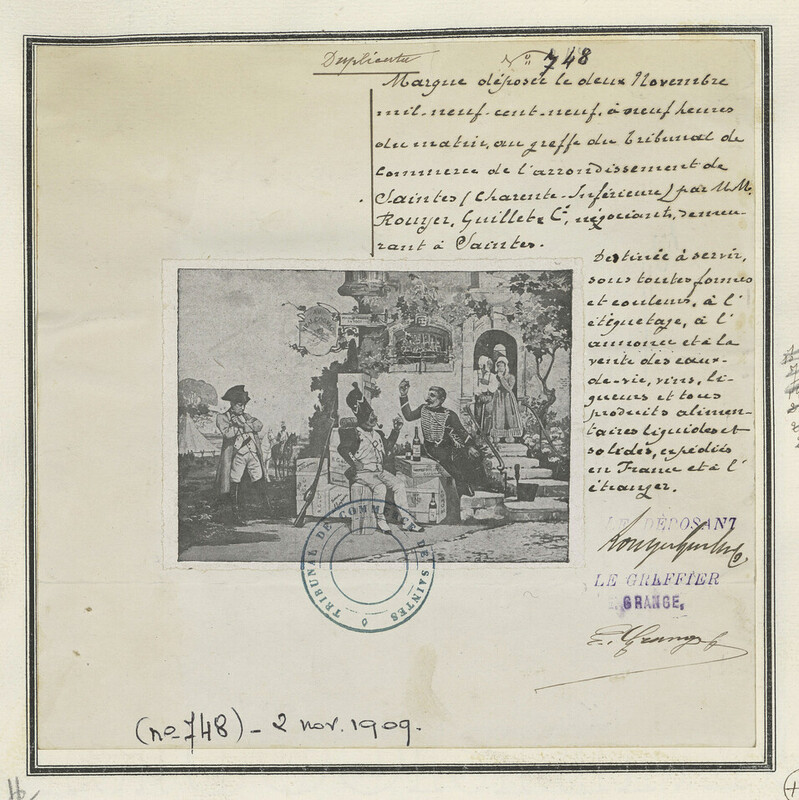 Duplicata
N° 748
Marque déposée le deux Novembre
mil-neuf-cent-neuf, à neuf heures
du matin, au greffe du Tribunal de
Commerce de l'arrondissement de
Saintes (Charente-Inférieure) par M.M.
Rouyer, Guillet & Cie, négociants, demeu-
rant à Saintes.
Destinée à servir,
sous toutes formes
et couleurs, à l'
étiquetage, à l'
annonce et à la
vente des eaux-
de-vie, vins, li-
queurs et tous
produits alimen-
taires liquides et
solides, expédiés
en France et à l'
étranger.
LE DÉPOSANT
Rouyer Guillet & Co
LE GREFFIER
E. GRANGE,
E. Grange
TRIBUNAL DE COMMERCE DE SAINTES
(no 748) - 2 nov. 1909.